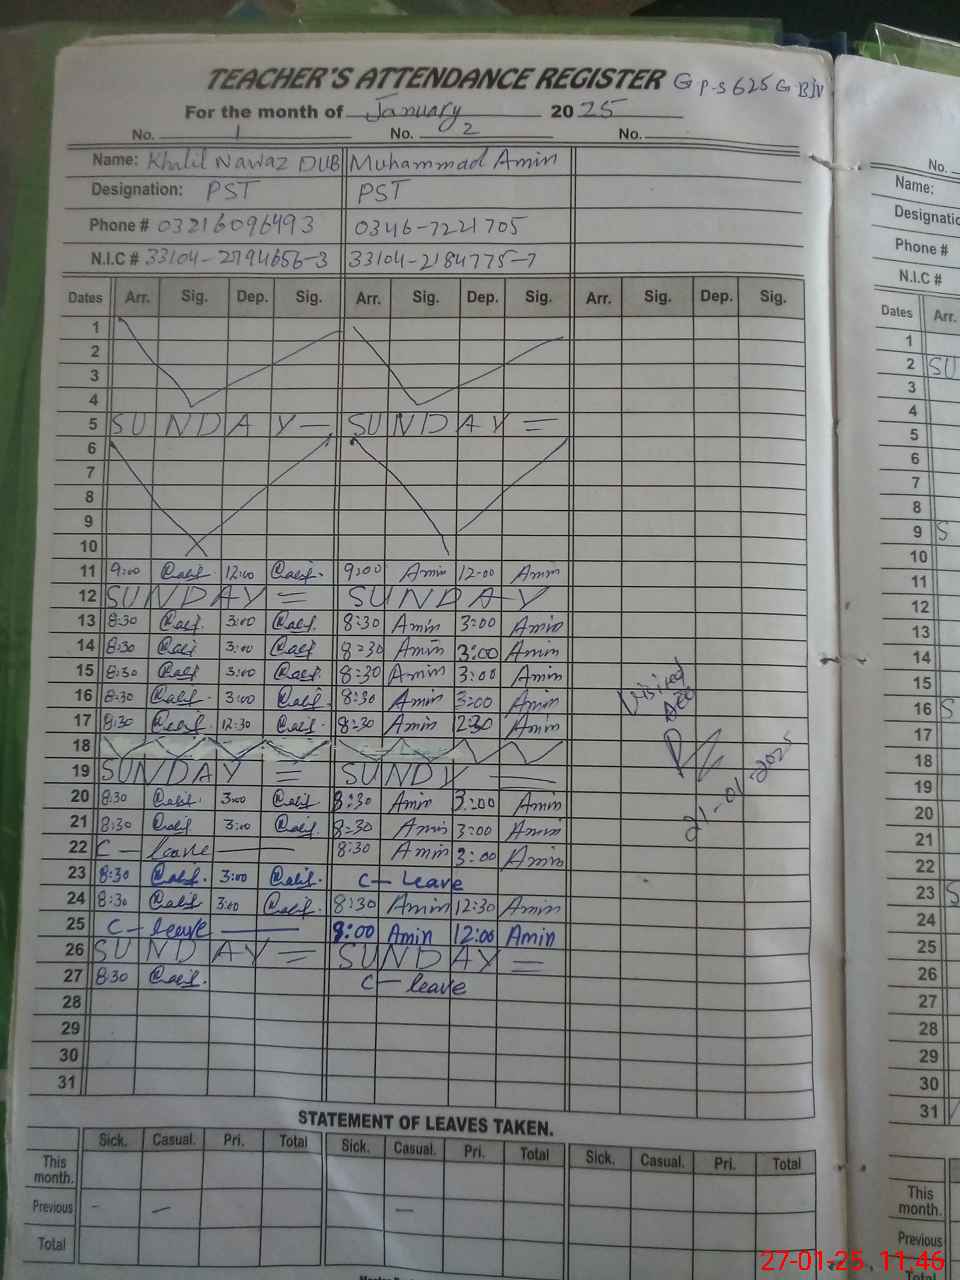 TEACHER'S ATTENDANCE REGISTER G P-S 625 G B
For the month of January 2025
No. 1 No. 2 No.
Name: Khalil Nawaz DUB Muhammad Amin
Designation: PST PST
Phone # 03216096493 0346-7221705
N.I.C # 33104-2794656-3 33104-2184775-7
Dates Arr. Sig. Dep. Sig. Arr. Sig. Dep. Sig. Arr. Sig. Dep. Sig.
1
2
3
4
5 SUNDAY — SUNDAY =
6
7
8
9
10
11 9:00 12:00 9:00 Amin 12-00 Amin
12 SUNDAY = SUNDAY
13 8:30 3:00 8:30 Amin 3:00 Amin
14 8:30 3:00 8=30 Amin 3:00 Amin
15 8:30 3:00 8=30 Amin 3:00 Amin
16 8:30 3:00 8:30 Amin 3:00 Amin
17 8:30 12:30 8=30 Amin 12:30 Amin
18
19 SUNDAY = SUNDY =
20 8:30 3:00 8:30 Amin 3:00 Amin
21 8:30 3:00 8=30 Amin 3:00 Amin
22 C - leave 8:30 Amin 3:00 Amin
23 8:30 3:00 C - Leave
24 8:30 3:00 8:30 Amin 12:30 Amin
25 C - leave 8:00 Amin 12:00 Amin
26 SUNDAY = SUNDAY =
27 8:30 C - leave
28
29
30
31
Visited
AEO
21-01-2025
STATEMENT OF LEAVES TAKEN.
Sick. Casual. Pri. Total Sick. Casual. Pri. Total Sick. Casual. Pri. Total
This month.
Previous - — —
Total
No.
Name:
Phone #
N.I.C #
Dates Arr.
1
2 SU
3
4
5
6
7
8
9 S
10
11
12
13
14
15
16 S
17
18
19
20
21
22
23 S
24
25
26
27
28
29
30
31
This month.
Previous
Total
27-01-25, 11,46